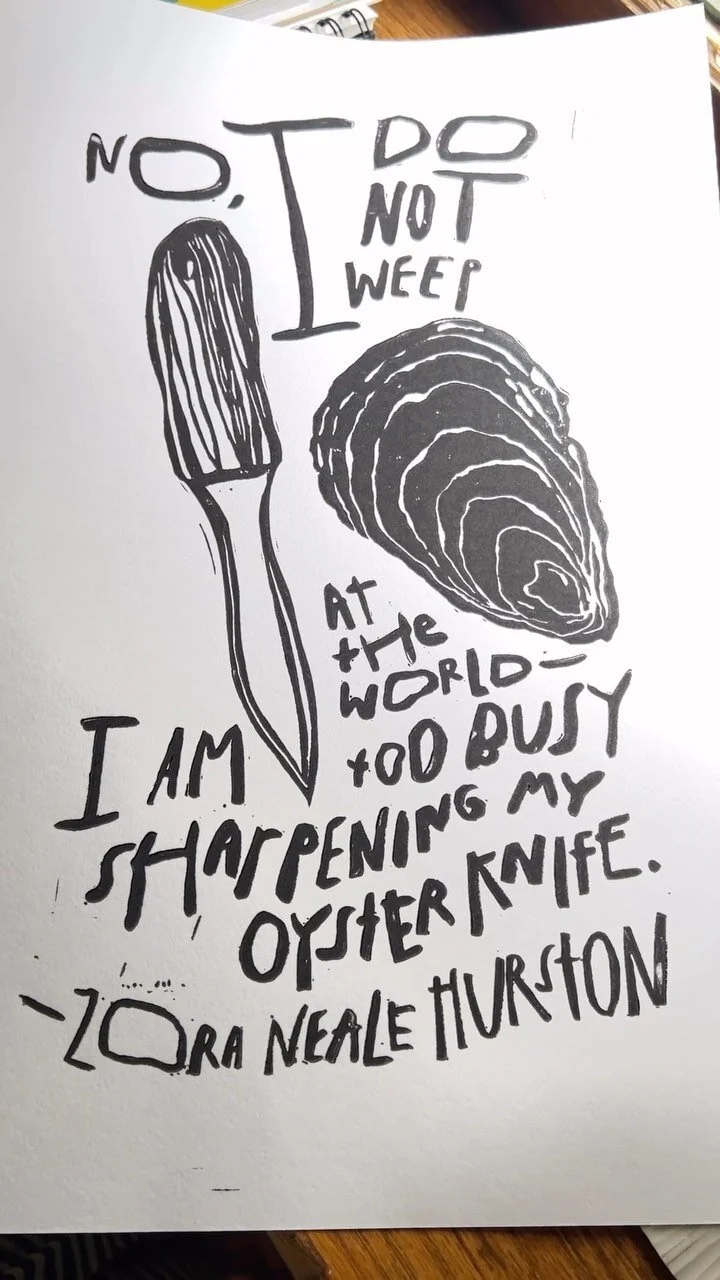 NO, I DO
NOT
WEEP
At
tHe
WORLD—
I AM tOO BUSY
SHARPENING MY
OYStER KNIFE.
-ZORA NEALE HURStON